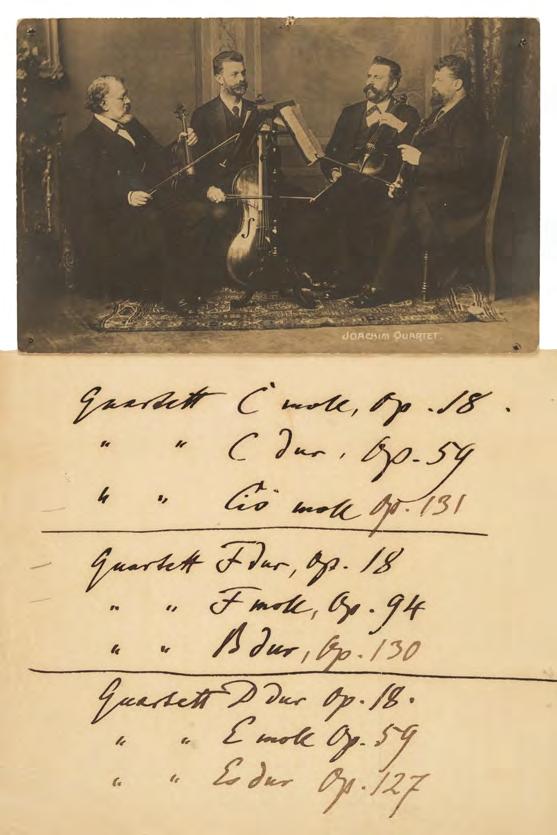 JOACHIM QUARTET.
Quartett C moll, Op. 18.
" " C dur, Op. 59
" " Cis moll Op. 131
Quartett F dur, Op. 18
" " F moll, Op. 94
" " B dur, Op. 130
Quartett D dur Op. 18.
" " E moll Op. 59
" " Es dur Op. 127